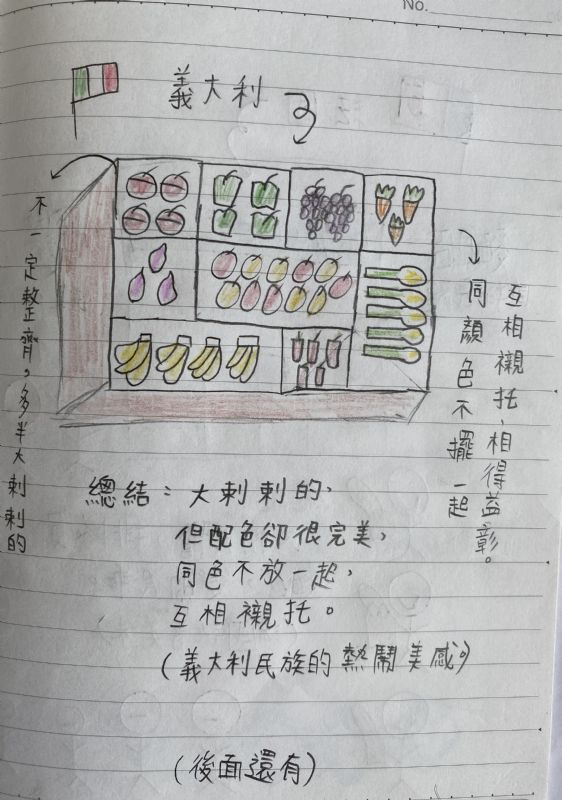 No.
義大利
不一定整齊。多半大剌剌的
互相襯托、相得益彰。
同顏色不擺一起
總結：大剌剌的、
但配色卻很完美、
同色不放一起、
互相襯托。
(義大利民族的熱鬧美感。)
(後面還有)